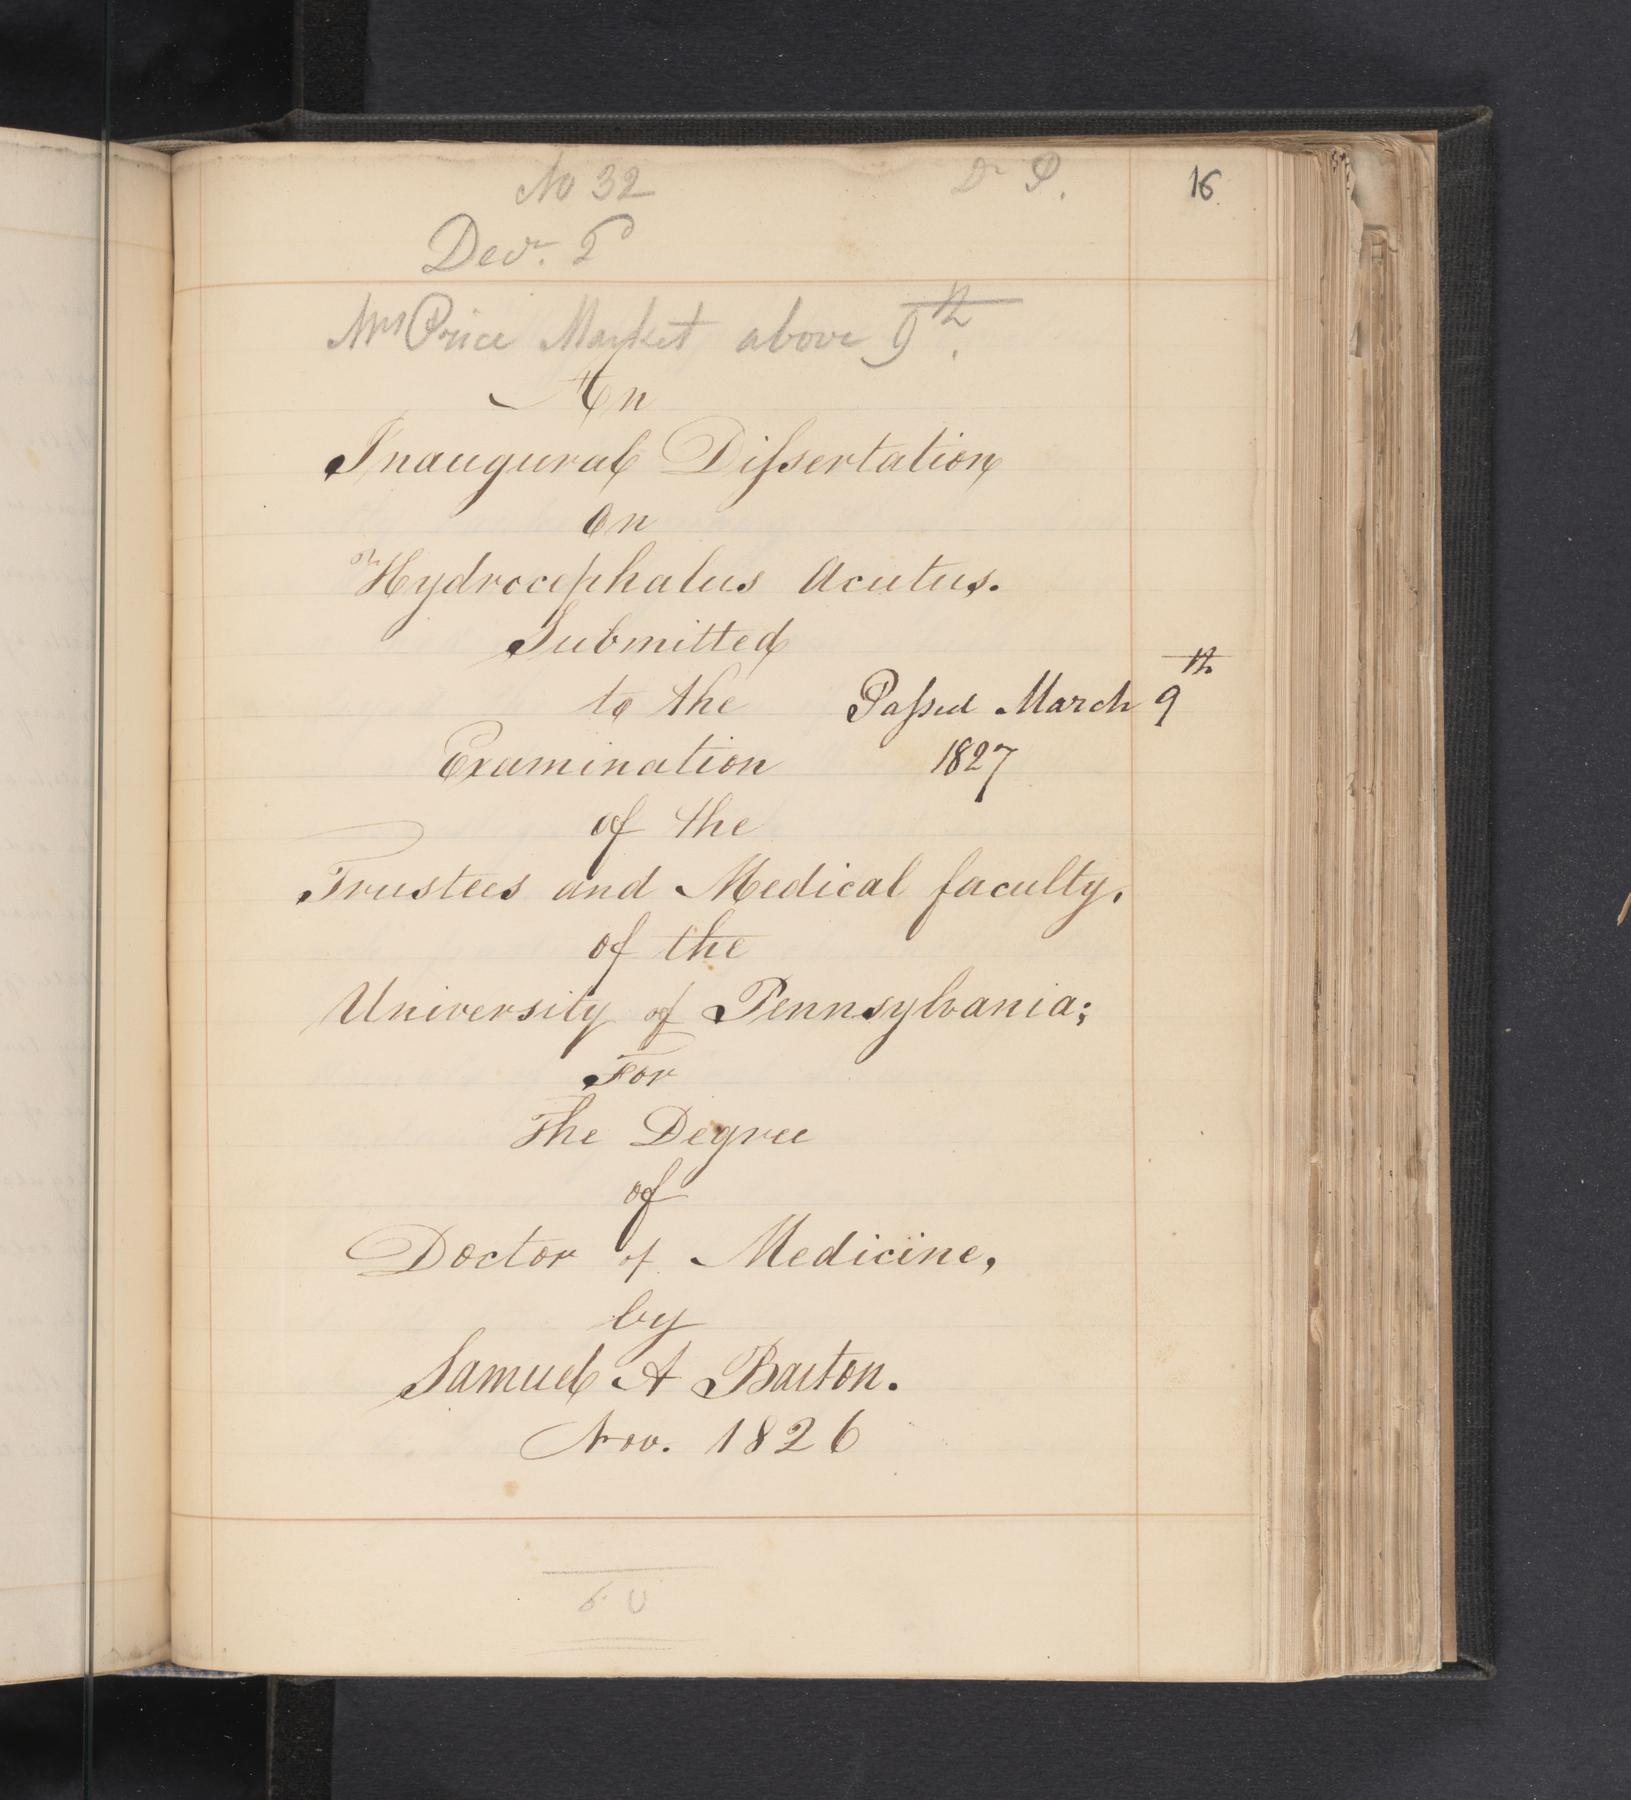 No 32 Dr P. 16
Mrs Price Market above 9th.
An
Inaugural Dissertation
On
Hydrocephalus Acutus.
Submitted
to the Passed March 9th
Examination 1827
of the
Trustees and Medical faculty,
of the
University of Pennsylvania;
For
The Degree
of
Doctor of Medicine,
by
Samuel A Barton.
Nov. 1826